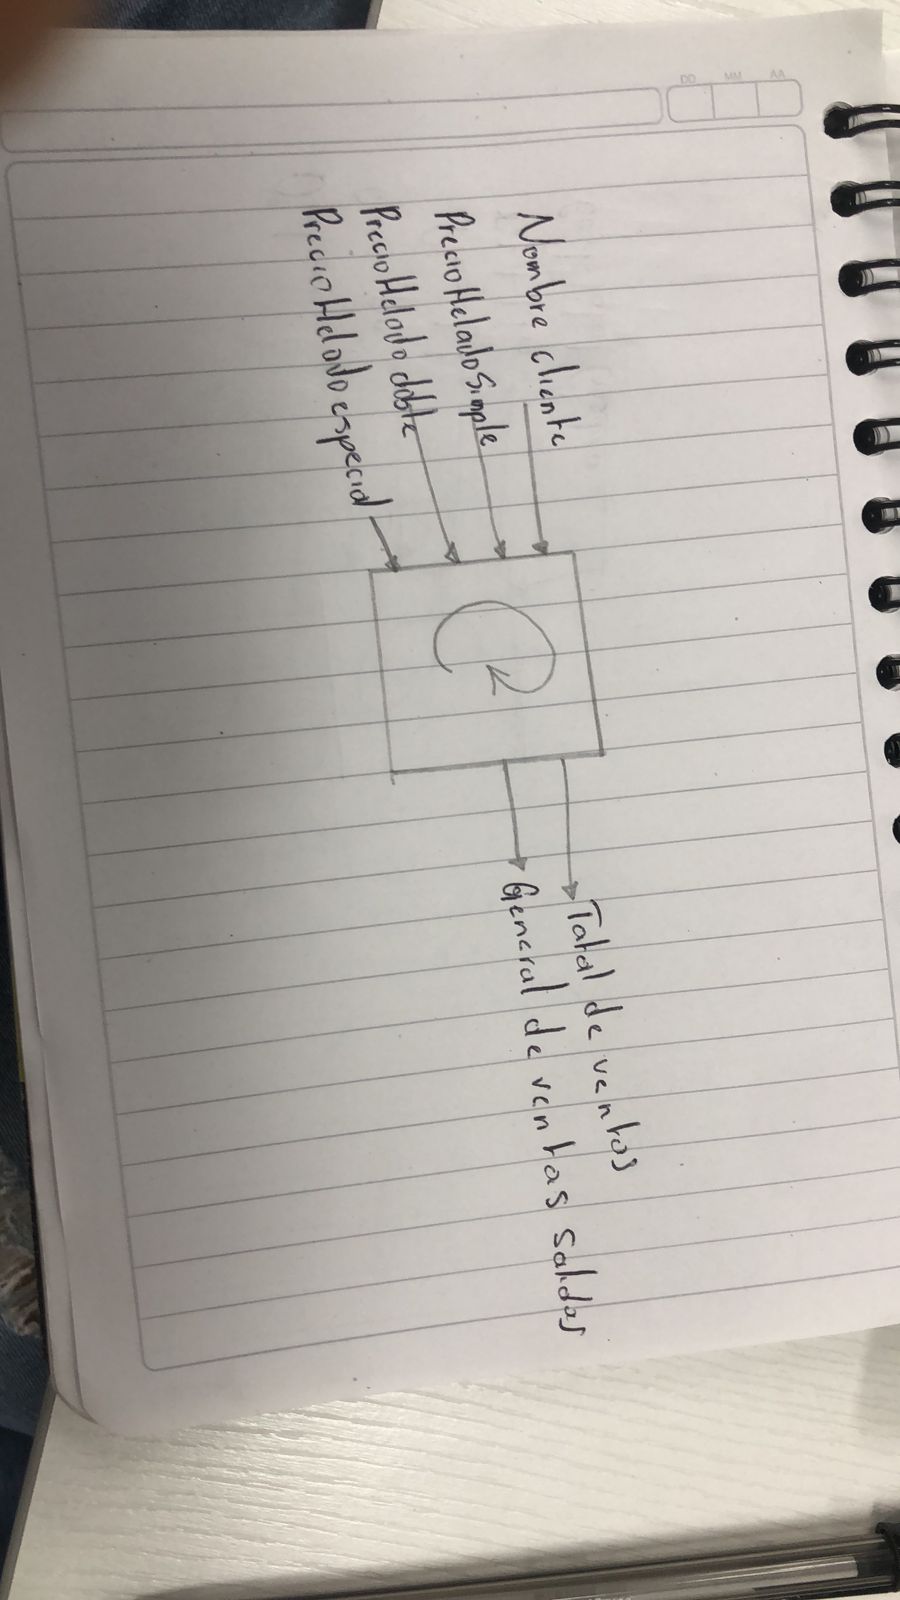 DD MM AA
Nombre cliente
PrecioHeladoSimple
PrecioHelado doble
PrecioHelado especial
Total de ventas
General de ventas salidas